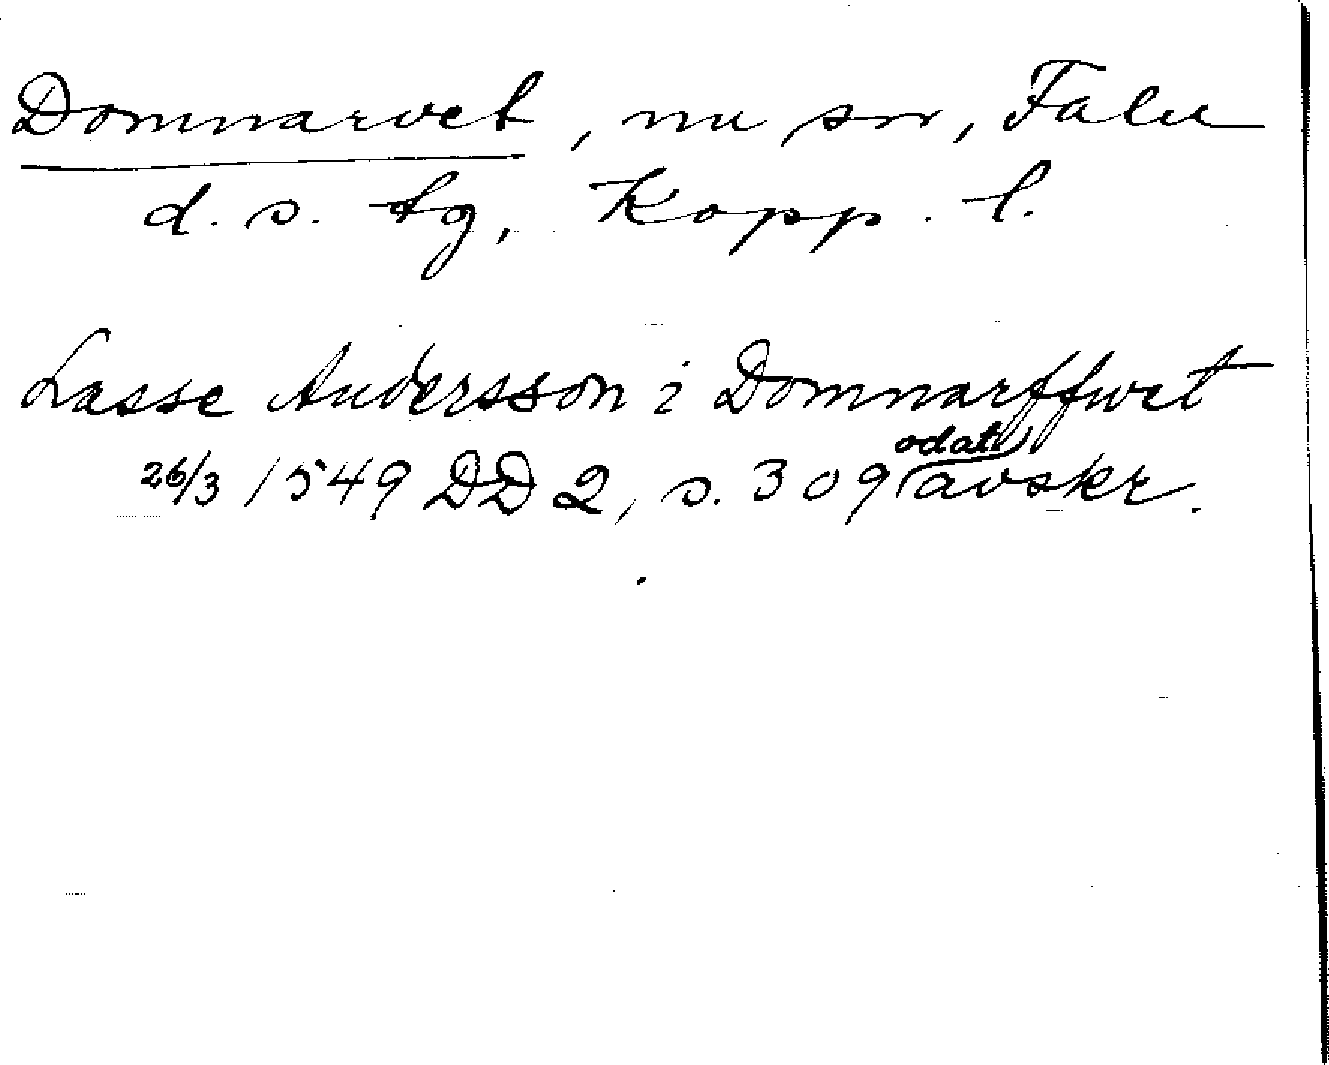 Domnarvet, nu sn, Falu
d. s. tg, Kopp. l.
Lasse Andersson i Domnarffwet
26/3 1549 DD 2, s. 309 odat. avskr.